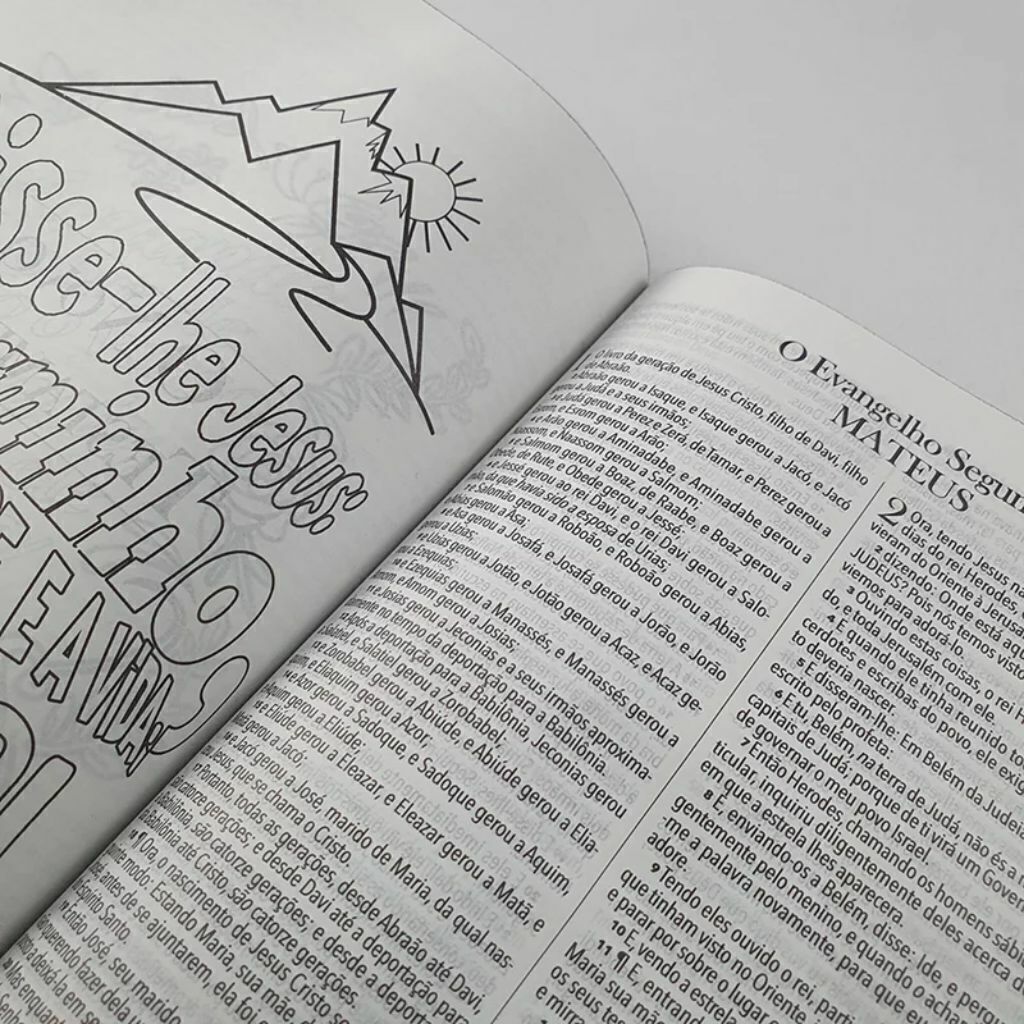 isse-lhe Jesus:
minho,
E A ViDA.
O Evangelho Segun
MATEUS
O livro da geração de Jesus Cristo, filho de Davi, filho
de Abraão.
Abraão gerou a Isaque, e Isaque gerou a Jacó, e Jacó
gerou a Judá e a seus irmãos;
Judá gerou a Perez e Zerá, de Tamar, e Perez gerou a
e Esrom gerou a Arão;
Arão gerou a Aminadabe, e Aminadabe gerou a
e Naassom gerou a Salmom;
Salmom gerou a Boaz, de Raabe, e Boaz gerou a
Obede, de Rute, e Obede gerou a Jessé;
Jessé gerou ao rei Davi, e o rei Davi gerou a Salo-
da que havia sido a esposa de Urias;
Salomão gerou a Roboão, e Roboão gerou a Abias,
Abias gerou a Asa;
Asa gerou a Josafá, e Josafá gerou a Jorão, e Jorão
gerou a Uzias;
Uzias gerou a Jotão, e Jotão gerou a Acaz, e Acaz ge-
a Ezequias;
Ezequias gerou a Manassés, e Manassés gerou a
e Amom gerou a Josias;
Josias gerou a Jeconias e a seus irmãos aproxima-
no tempo da deportação para a Babilônia.
Após a deportação para a Babilônia, Jeconias gerou
e Salatiel gerou a Zorobabel;
Zorobabel gerou a Abiúde, e Abiúde gerou a Elia-
e Eliaquim gerou a Azor;
Azor gerou a Sadoque, e Sadoque gerou a Aquim,
gerou a Eliúde;
Eliúde gerou a Eleazar, e Eleazar gerou a Matã, e
gerou a Jacó;
Jacó gerou a José, marido de Maria, da qual nas-
Jesus, que se chama o Cristo.
Portanto, todas as gerações, desde Abraão até Davi,
catorze gerações, e desde Davi até a deportação para
Babilônia, são catorze gerações, e desde a deportação para
Babilônia até Cristo, são catorze gerações.
¶ Ora, o nascimento de Jesus Cristo
modo: Estando Maria, sua mãe,
antes de se ajuntarem, ela foi
Espírito Santo.
Então José, seu marido
querendo fazer dela
deixá-la em se
Mas enquan
2 Ora, tendo Jesus n
dias do rei Herodes,
vieram do Oriente à Jerusalé
2 dizendo: Onde está aqu
JUDEUS? Pois nós temos visto
viemos para adorá-lo.
3 Ouvindo estas coisas, o rei H
do, e toda Jerusalém com ele.
4 E quando ele tinha reunido to
cerdotes e escribas do povo, ele exigi
to deveria nascer.
5 E disseram-lhe: Em Belém da Judeia
escrito pelo profeta:
6 E tu, Belém, na terra de Judá, não és a m
capitais de Judá; porque de ti virá um Gover
de governar o meu povo Israel.
7 Então Herodes, chamando os homens sábi
ticular, inquiriu diligentemente deles acerca d
em que a estrela lhes aparecera.
8 E, enviando-os a Belém, disse: Ide, e pergu
gentemente pelo menino, e quando o achar
-me a palavra novamente, para que eu
adore.
9 Tendo eles ouvido o rei, parti
que tinham visto no Oriente
e parar por sobre o lugar
10 E, vendo a estrela
11 ¶ E, entrand
Maria, sua mã
os seus te
e mirra